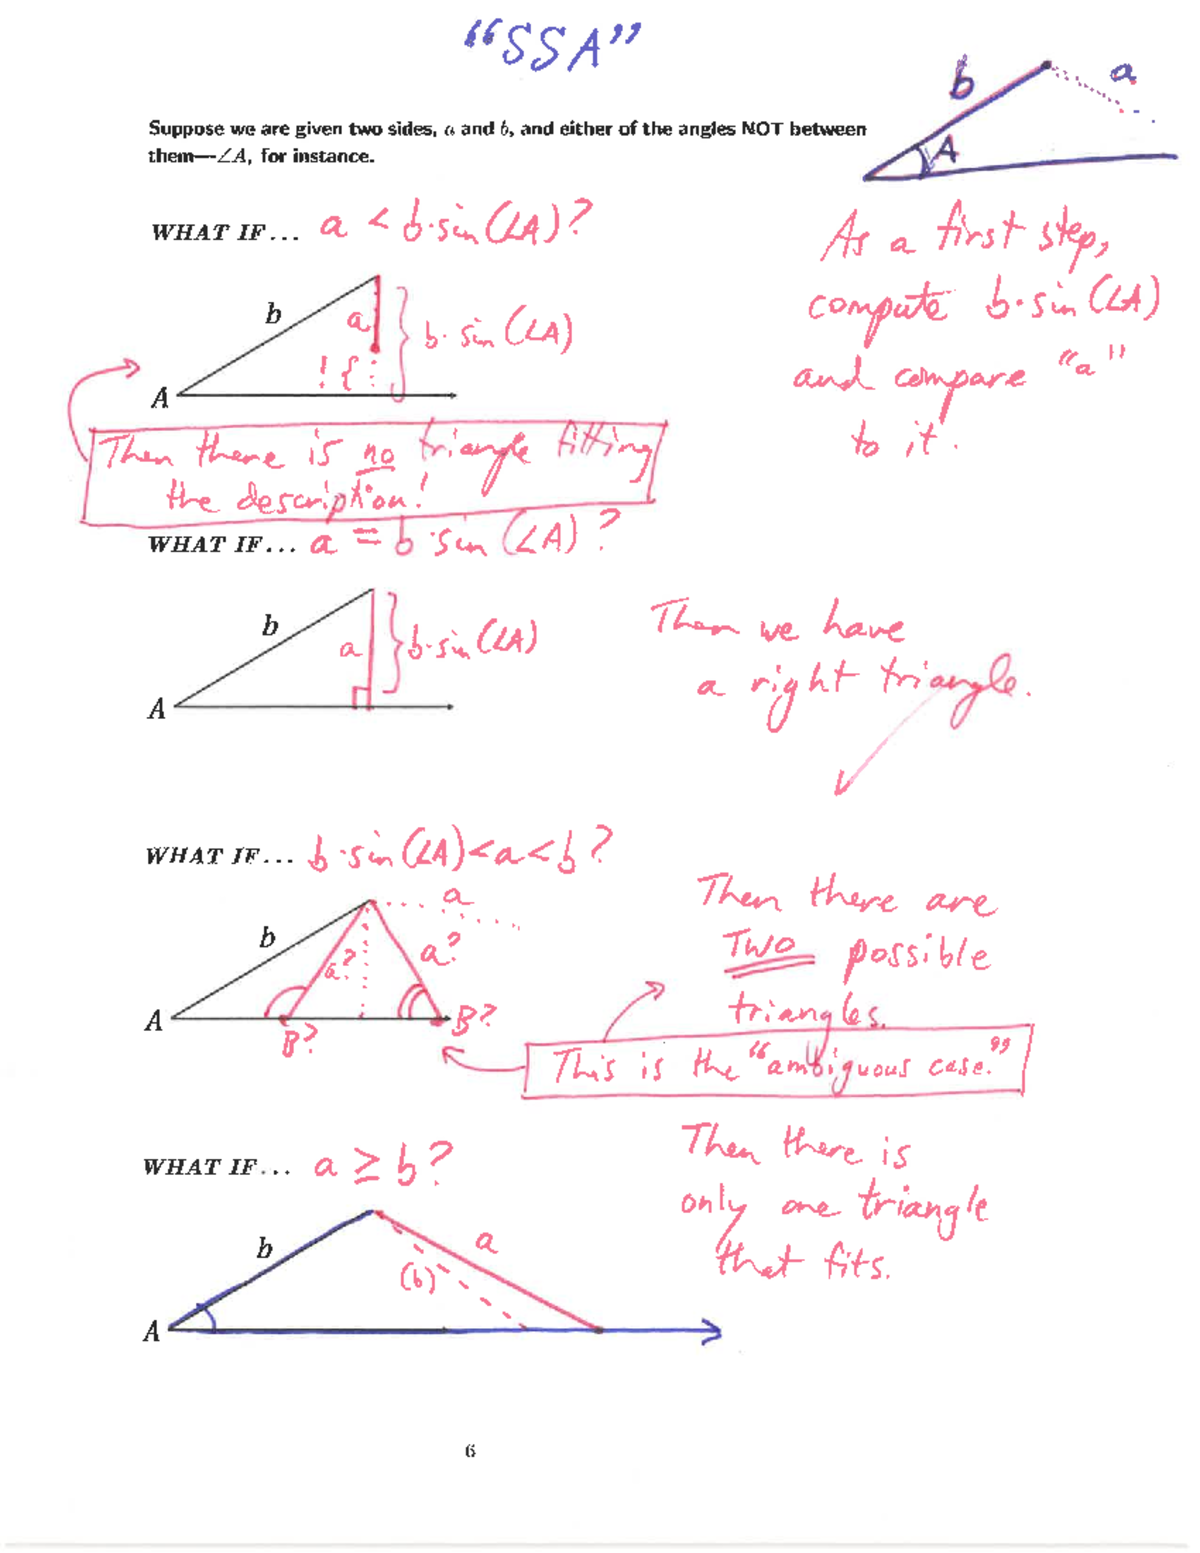 “SSA”
Suppose we are given two sides, a and b, and either of the angles NOT between
them—∠A, for instance.
b
a
A
WHAT IF... a < b·sin(∠A)?
As a first step,
compute b·sin(∠A)
and compare "a"
to it.
b
a
b·sin(∠A)
! {
A
Then there is no triangle fitting
the description!
WHAT IF... a = b·sin(∠A)?
b
a
b·sin(∠A)
A
Then we have
a right triangle.
WHAT IF... b·sin(∠A)<a<b?
a
b
a?
a?
A
B?
B?
Then there are
TWO possible
triangles.
This is the “ambiguous case.”
WHAT IF... a ≥ b?
Then there is
only one triangle
that fits.
b
a
(b)
A
6